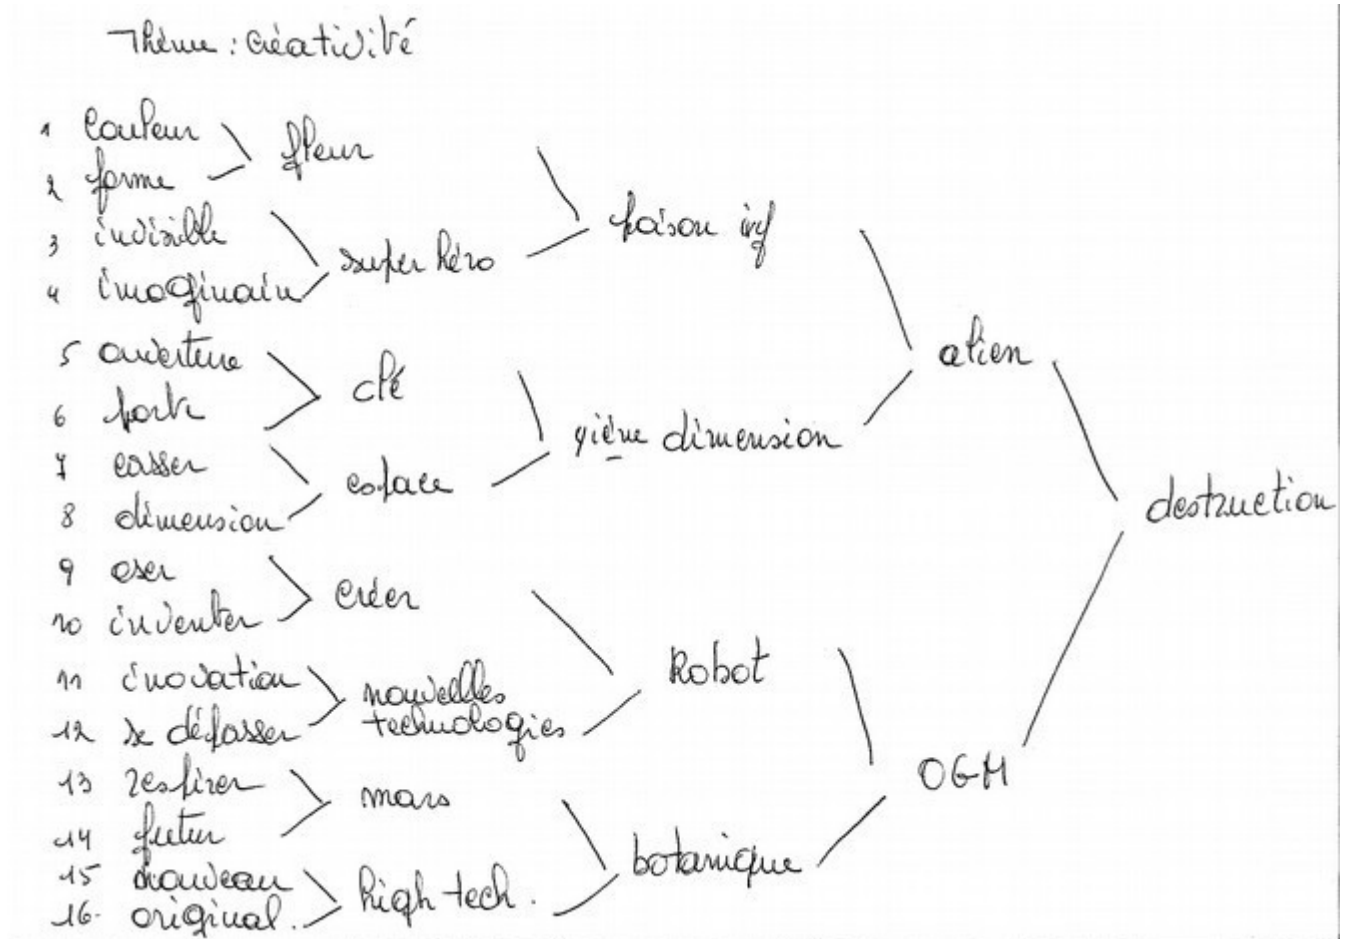 Thème : Créativité
1 Couleur
2 forme
3 invisible
4 imaginaire
5 ouverture
6 porte
7 casser
8 dimension
9 oser
10 inventer
11 inovation
12 se dépasser
13 respirer
14 futur
15 nouveau
16. original.
fleur
super héro
clé
espace
créer
nouvelles
technologies
mars
high tech.
poison ivy
4ième dimension
Robot
botanique
alien
OGM
destruction